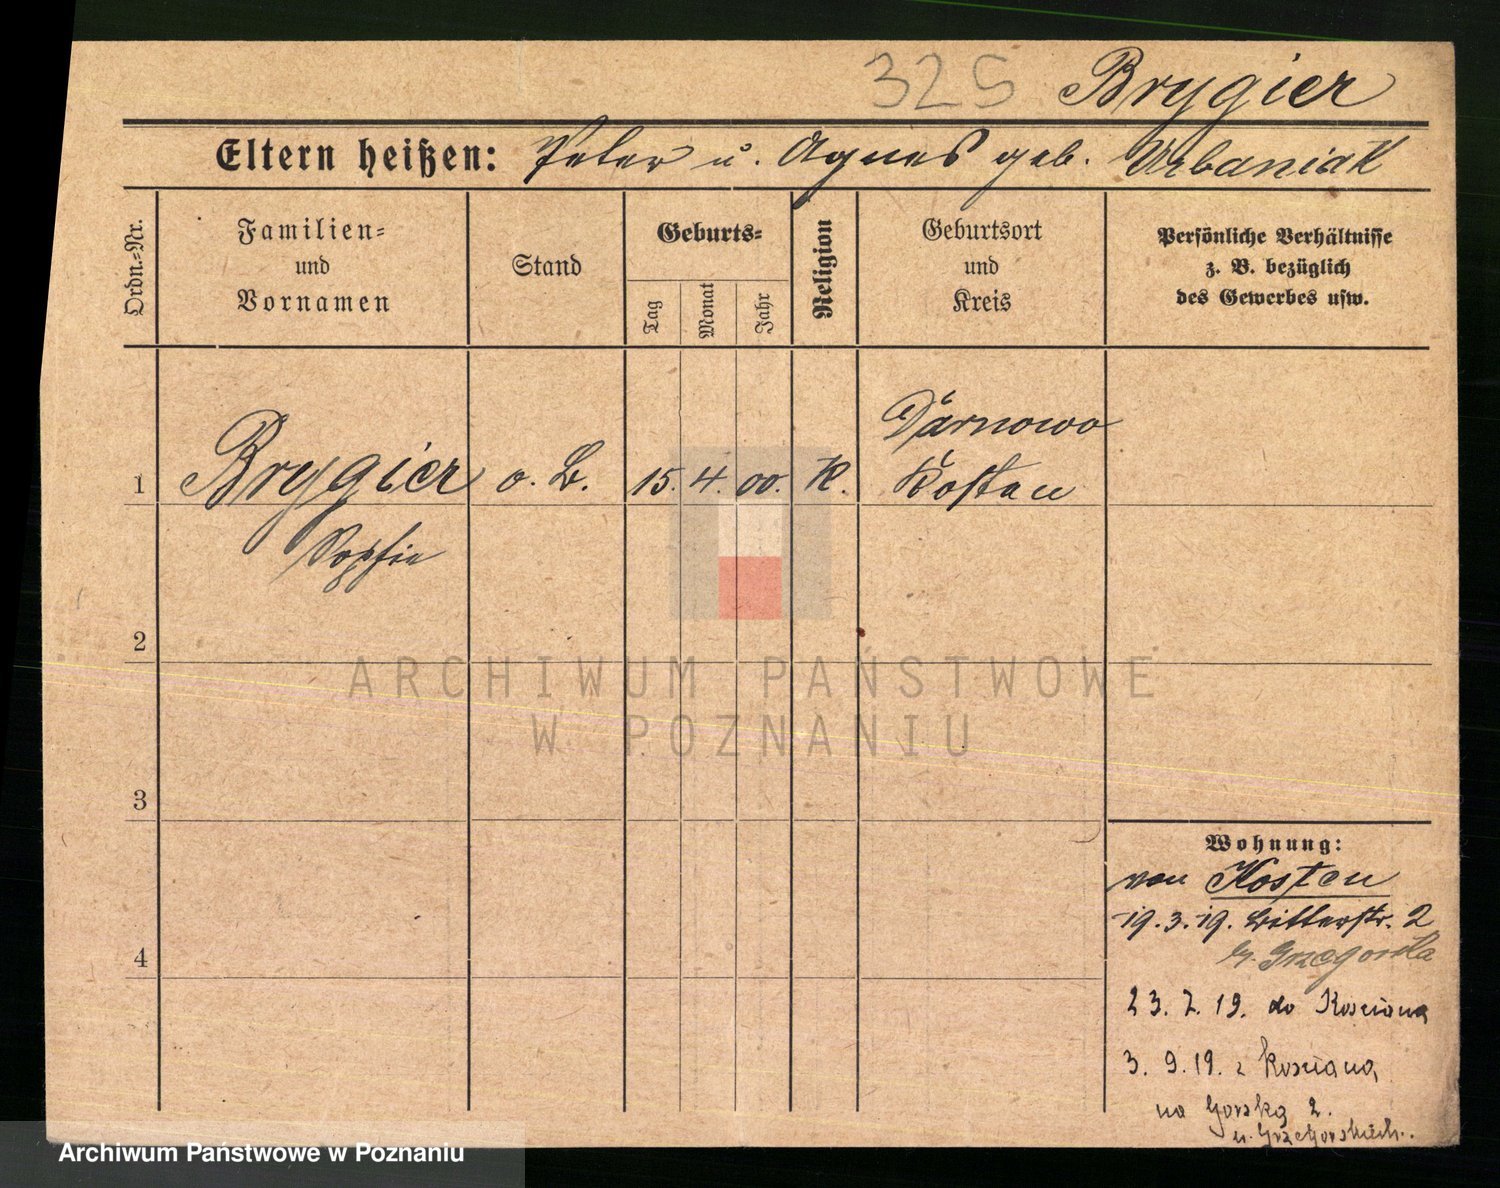 325 Brygier
Eltern heißen: Peter u. Agnes geb. Urbaniak
Ordn.-Nr.
Familien-
und
Vornamen
Stand
Geburts-
Tag
Monat
Jahr
Religion
Geburtsort
und
Kreis
Persönliche Verhältnisse
z. B. bezüglich
des Gewerbes usw.
1 Brygier o. B. 15. 4. 00. K. Darnowo
Kosten
Sophie
2
3
4
Wohnung:
von Kosten
19.3.19. Bitterstr. 2
23. 7. 19. do Kosciana
3. 9. 19. z Kosciana,
na Gorską 2.
ARCHIWUM PAŃSTWOWE
W POZNANIU
Archiwum Państwowe w Poznaniu